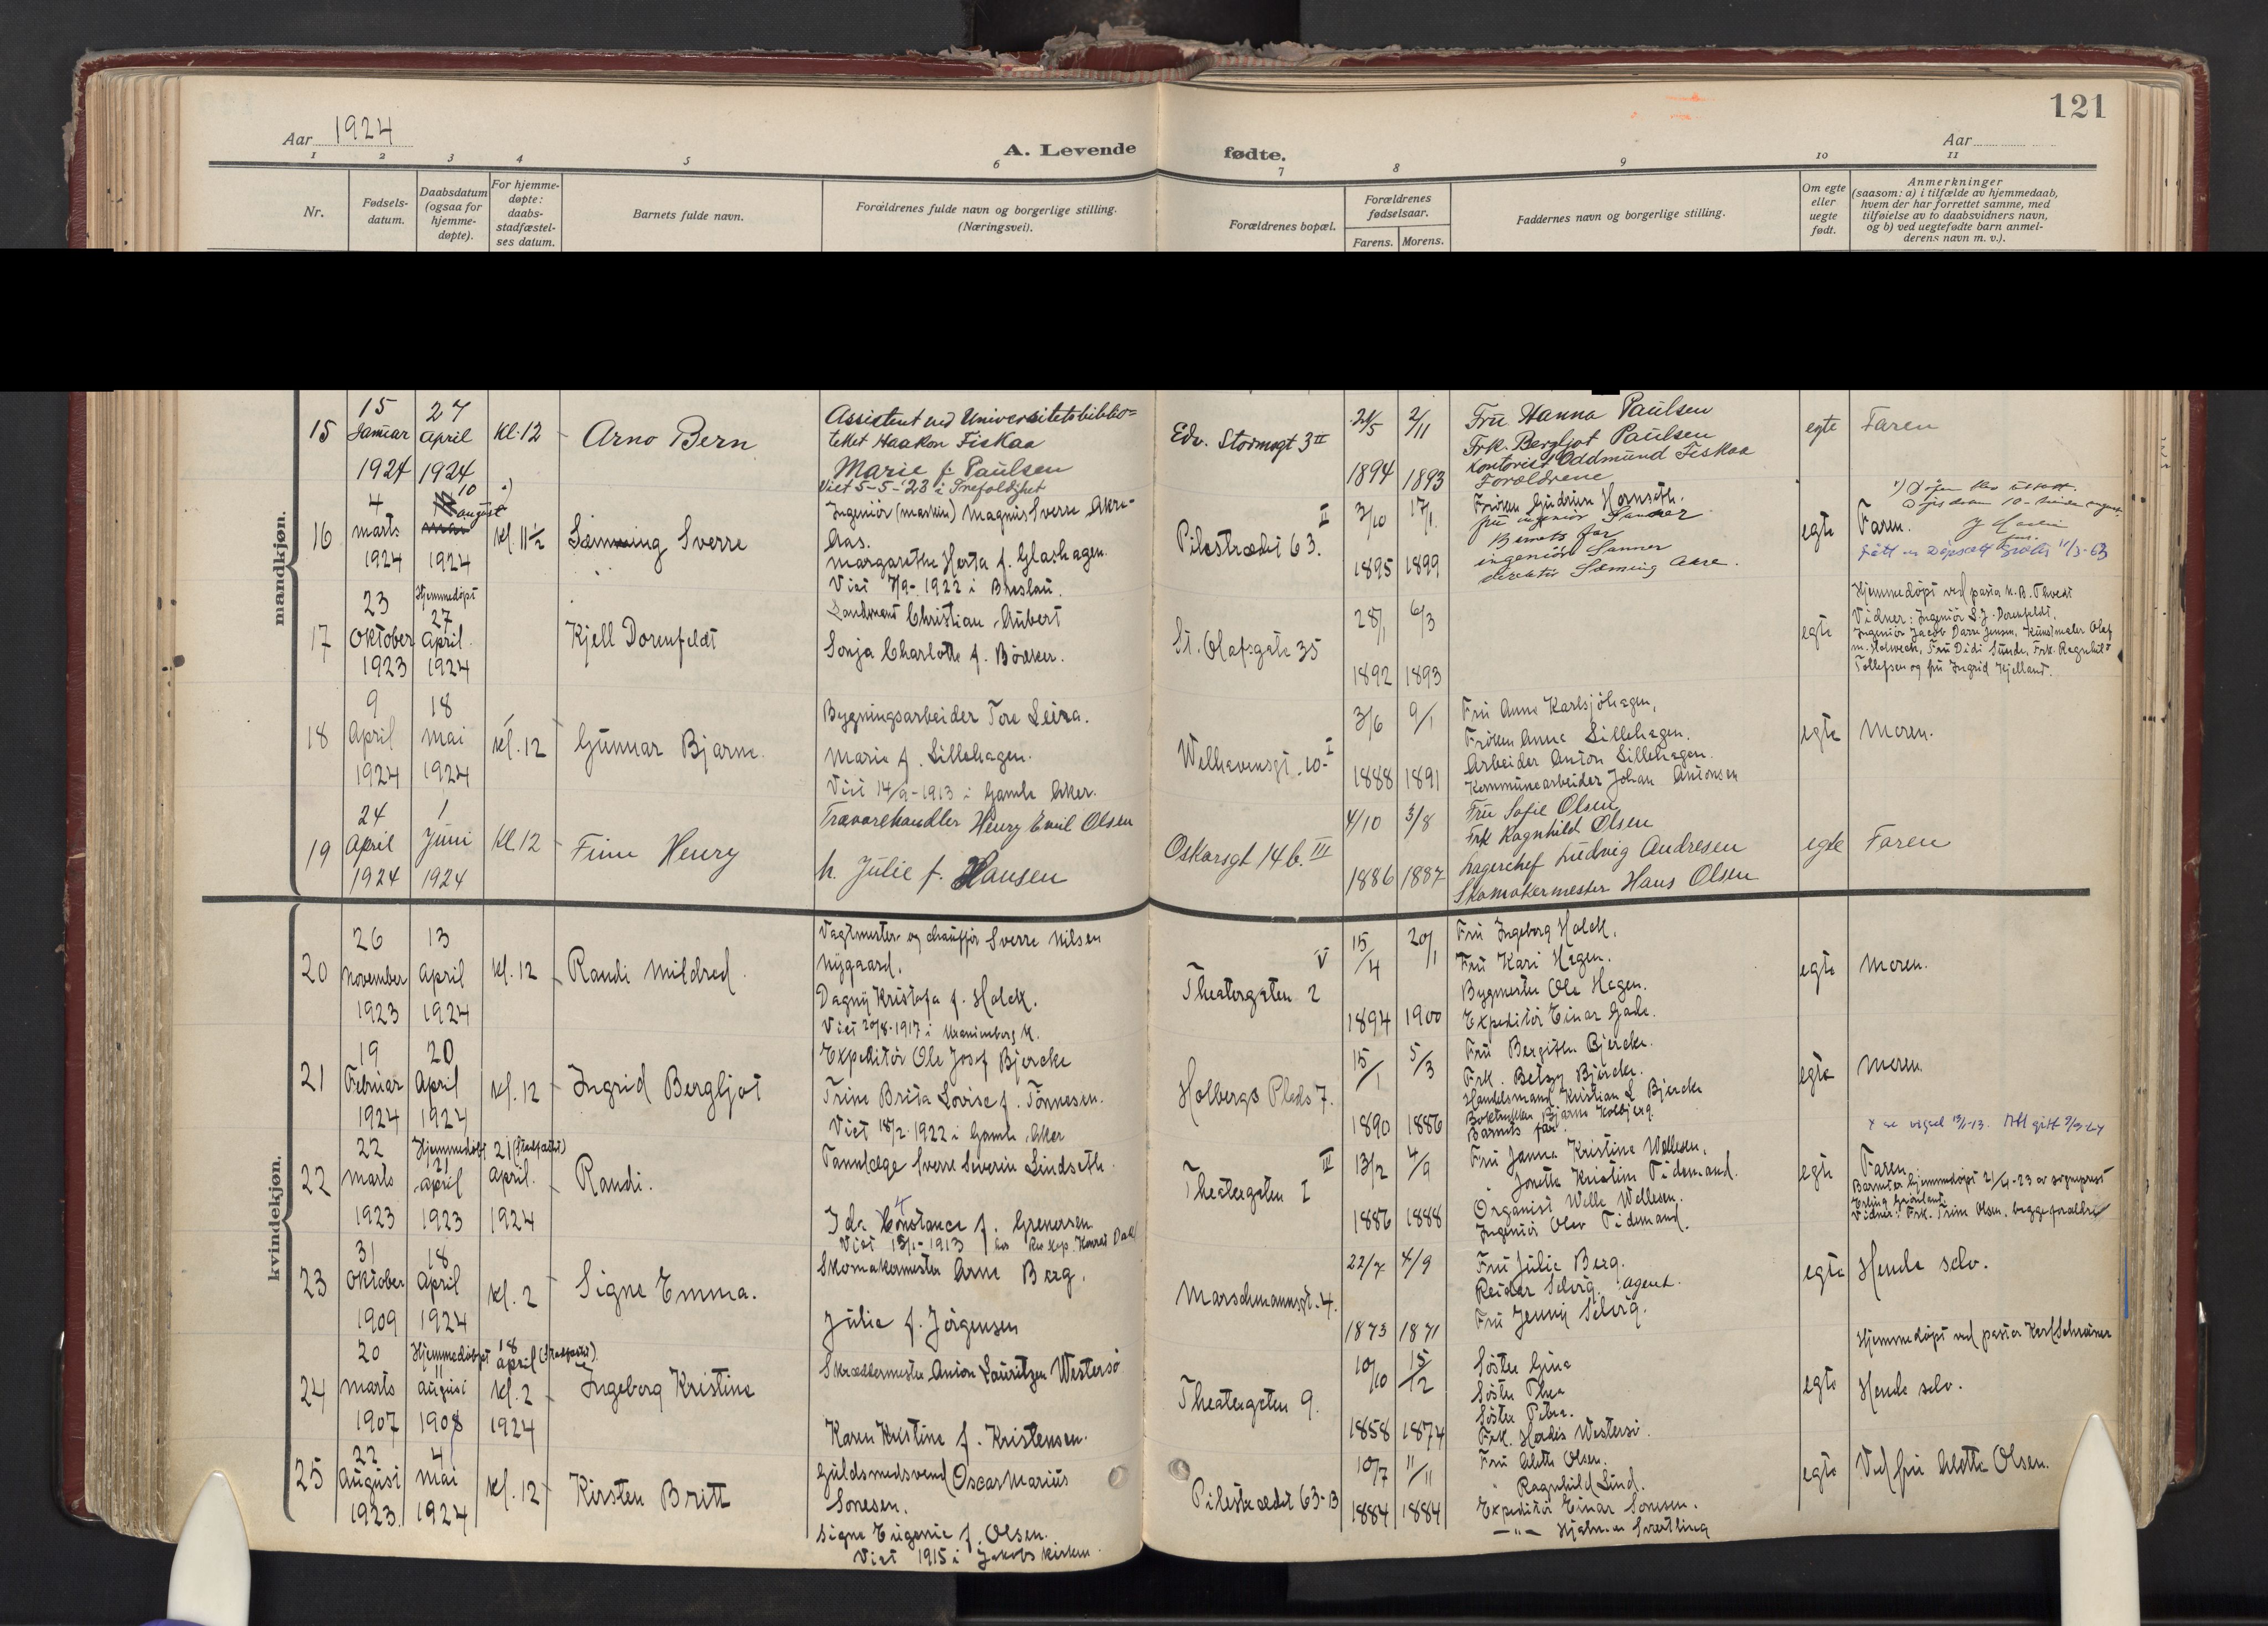 121
Aar 1924
A. Levende fødte.
Aar
1 2 3 4 5 6 7 8 9 10 11
Nr.
Fødsels-
datum.
Daabsdatum
(ogsaa for
hjemme-
døpte).
For hjemme-
døpte:
daabs-
stadfæstel-
ses datum.
Barnets fulde navn.
Forældrenes fulde navn og borgerlige stilling.
(Næringsvei).
Forældrenes bopæl.
Forældrenes
fødselsaar.
Farens. Morens.
Faddernes navn og borgerlige stilling.
Om egte
eller
uegte
født.
Anmerkninger
(saasom: a) i tilfælde av hjemmedaab,
hvem der har forrettet samme, med
tilføielse av to daabsvidners navn,
og b) ved uegtefødte barn anmel-
derens navn m. v.).
mandkjøn.
15
15
Januar
1924
27
April
1924
Kl. 12
Arno Bern
Assistent ved Universitetsbiblio=
teket Haakon Fiskaa
Marie f. Paulsen
Viet 5-5-'23 i Trefoldighet
Edv. Stormsgt 3 II
21/5
1894
2/11
1893
Fru Hanna Paulsen
Frk. Bergljot Paulsen
Kontorist Oddmund Fiskaa
Forældrene
egte
Faren
16
4
marts
1924
10
august
1924
Kl. 11½
Sæmming Sverre
Ingeniør (maskin) Magnus Sverre Akre-
Aas.
Margarethe Herta f. Glashagen.
Viet 7/9-1922 i Breslau.
Pilestrædet 63. II
3/10
1895
17/1
1899
Frøken Gudrun Hornseth.
fru ingeniør Sanner
Barnets far
ingeniør Sanner
direktør Sæming Aase.
egte
Faren.
17
23
Oktober
1923
Hjemmedøpt
27
April
1924
Kjell Dorenfeldt
Landmand Christian Aubert
Sonja Charlotte f. Bödker.
St. Olafsgate 35
28/1
1892
6/3
1893
egte
Hjemmedøpt ved pastor K. B. Thvedt
Vidner: Ingeniør S. J. Dorenfeldt,
Ingeniør Jacob Darre Jensen, Kunstmaler Olaf
M. Holwech, Fru Didi Sunde, Frk. Ragnhild
Tollefsen og fru Ingrid Kjelland.
18
9
April
1924
18
Mai
1924
Kl. 12
Gunnar Bjarne.
Bygningsarbeider Tore Leira.
Marie f. Lillehagen.
Viet 14/9-1913 i Gamle Aker.
Welhavensgt. 10 I
3/6
1888
9/1
1891
Fru Anne Karlsjöhagen,
Frøken Anna Lillehagen.
Arbeider Anton Lillehagen.
Kommunearbeider Johan Antonsen
egte
Moren.
19
24
April
1924
1
Juni
1924
Kl. 12
Finn Henry
Trævarehandler Henry Emil Olsen
h. Julie f. Hansen
Oskarsgt 14 b. III
4/10
1886
3/8
1887
Fru Sofie Olsen
Frk Ragnhild Olsen
Lagerchef Ludvig Andresen
Skomakermester Hans Olsen
egte
Faren
kvindekjøn.
20
26
November
1923
13
April
1924
Kl. 12
Randi Mildred.
Vagtmester og chauffør Sverre Nilsen
Nygaard.
Dagny Kristofa f. Holck.
Viet 20/8-1917 i Uranienborg K.
Theatergaten 2 V
15/4
1894
20/1
1900
Fru Ingeborg Holck.
Fru Kari Hagen.
Bygmester Ole Hagen.
Expeditør Einar Gade.
egte
Moren.
21
19
Februar
1924
20
April
1924
Kl. 12
Ingrid Bergljot
Expeditør Ole Josef Bjercke
Trine Brita Lovise f. Tönnesen.
Viet 18/2 1922 i Gamle Aker
Holbergs Plads 7.
15/1
1890
5/3
1886
Fru Bergithe Bjercke.
Frk. Betzy Bjercke.
Handelsmand Kristian L Bjercke
Boktrykker Bjarne Kolbjerg.
Barnets far.
egte
Moren.
22
22
Marts
1923
Hjemmedøbt
21
April
1923
21 (Stadfæstet)
April.
1924
Randi.
Tannlæge Sverre Severin Lindseth.
Ida Constance f. Grenersen.
Viet 15/1-1913 hos Res. Kap. Konrad Dahl
Theatergaten 1 III
13/2
1886
4/9
1888
Fru Janna Kristine Wellesen.
" Jonette Kristine Tidemand.
Organist Welle Wellesen.
Ingeniør Olev Tidemand.
egte
x se vigsel 15/1-13.
Faren
Barnet er hjemmedøpt 21/4-23 av sogneprest
Erling Grønland.
Vidner: Frk. Trine Olsen, begge forældre
23
31
Oktober
1909
18
April
1924
Kl. 2
Signe Emma.
Skomakermester Arne Berg.
Julie f. Jörgensen
Marschmannsgt. 4.
22/7
1873
4/9
1871
Fru Julie Berg.
Reidar Selvig. agent.
Fru Jenny Selvig.
egte
Hende selv.
24
20
Marts
1907
Hjemmedøpt
11
August
1908
18
April (Stadfæstet)
Kl. 2
1924
Ingeborg Kristine
Skræddermester Anton Lauritzen Westersö
Karen Kristine f. Kristensen.
Theatergaten 9.
10/10
1858
15/12
1874
Søster Gina
Søster Thea
Søster Petra.
Frk. Herdis Westersö.
egte
Hjemmedøpt ved pastor Karl Schreiner
Hende selv.
25
22
August
1923.
4
Mai
1924
Kl. 12
Kirsten Britt
Guldsmedsvend Oscar Marius
Sonesen.
Signe Eugenie f. Olsen.
Viet 1915 i Jakobs kirken.
Pilestrædet 63-B
10/7
1884
11/11
1884
Fru Alette Olsen.
" Ragnhild Lind.
Expeditør Einar Sonesen.
— " — Hjalmar Svartling
egte
Ved fru Alette Olsen.